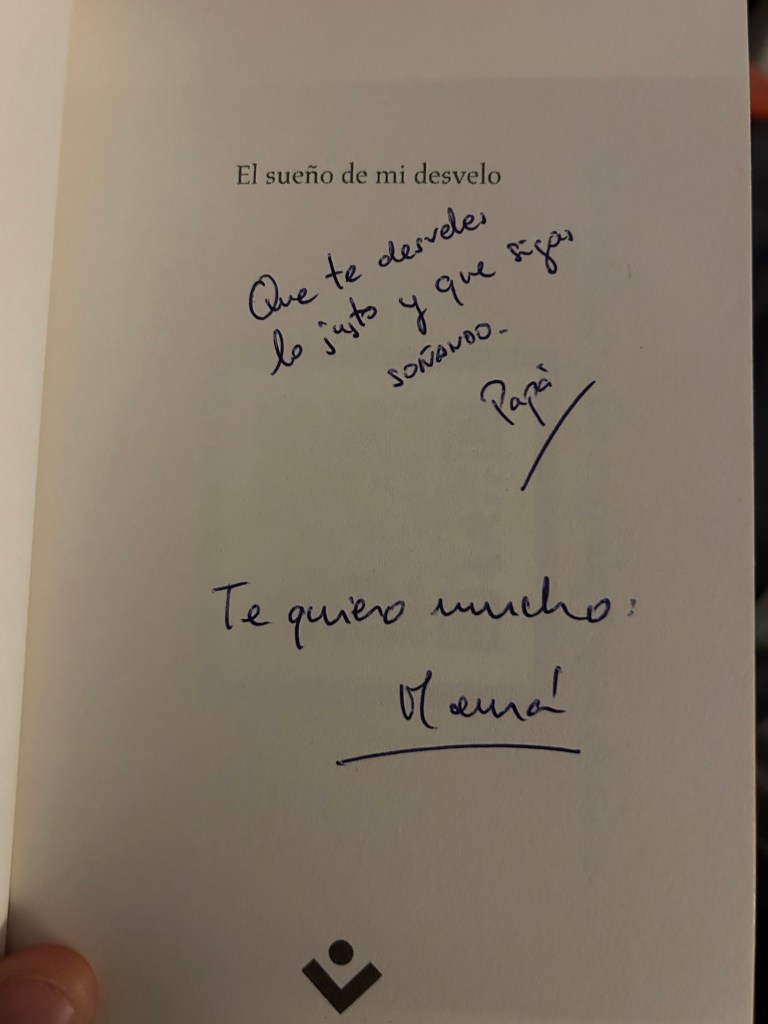 El sueño de mi desvelo
Que te desveles
lo justo y que sigas
SOÑANDO.-
Papá
Te quiero mucho:
Mamá